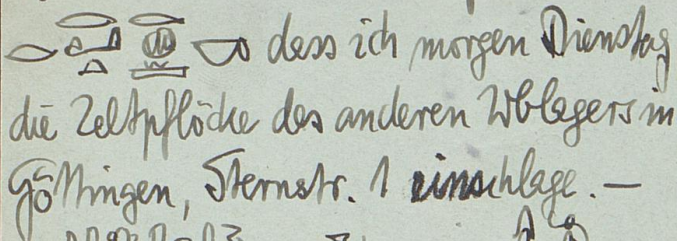 dass ich morgen Dienstag
die Zeltpflöcke des anderen Wblagers in
Göttingen, Sternstr. 1 einschlage. —